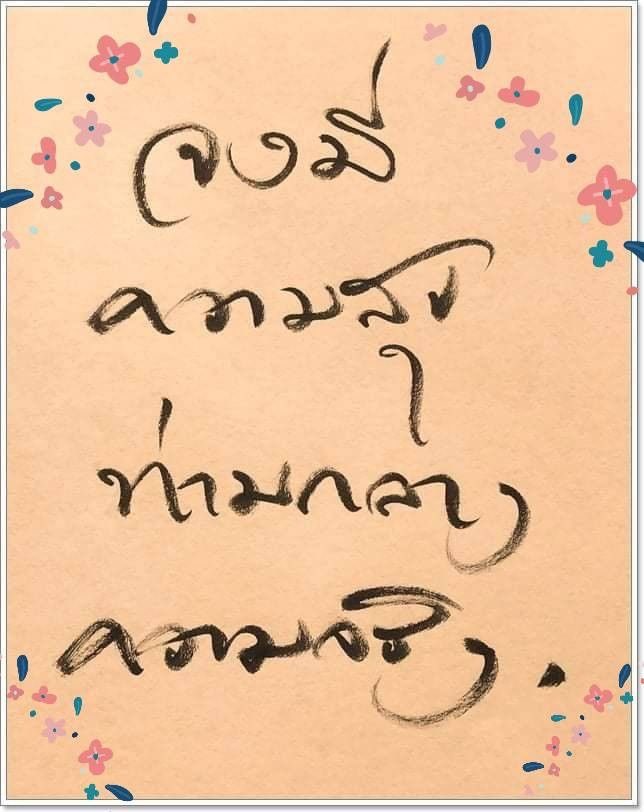 จงมี
ความสุข
ท่ามกลาง
ความจริง.